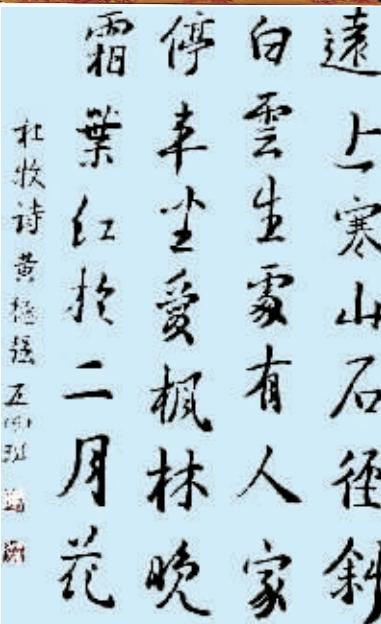 遠上寒山石径斜
白雲生處有人家
停車坐愛楓林晚
霜葉红於二月花
杜牧诗 黄